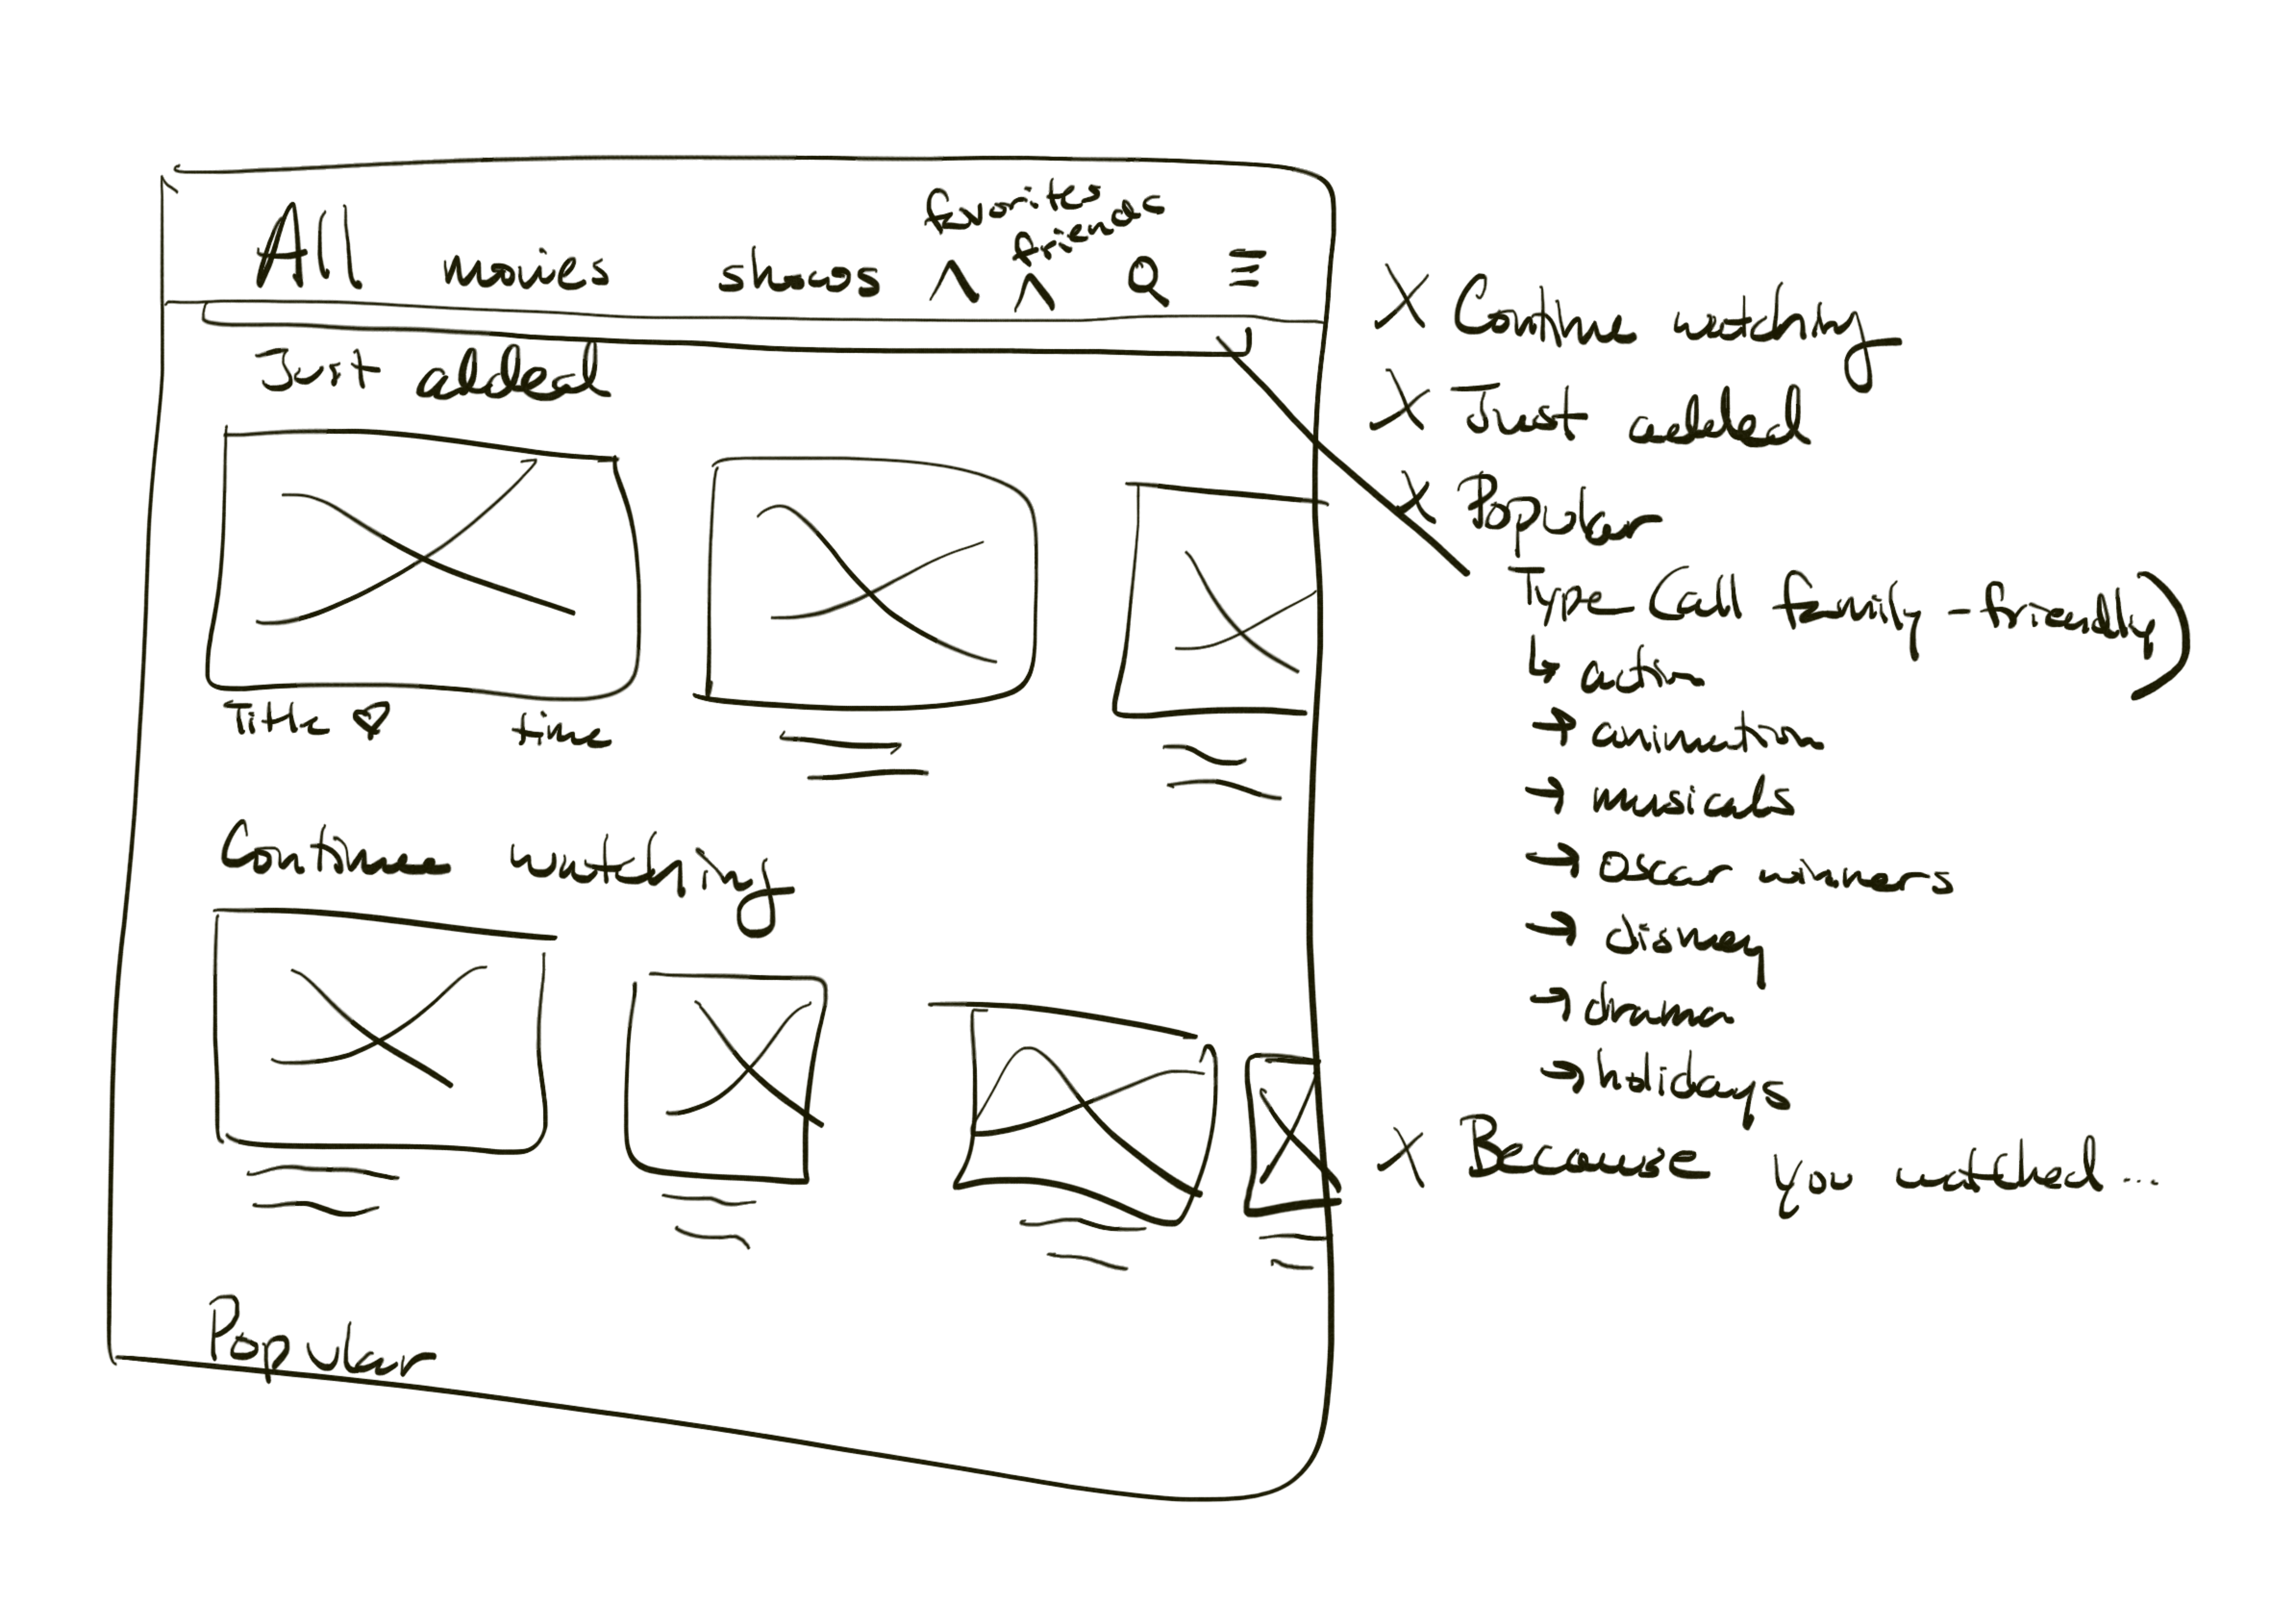 favorites
friends
All movies shows
Just added
Title time
Continue watching
Popular
X Continue watching
X Just added
X Popular
Type (all family-friendly)
↳ action
→ animation
→ musicals
→ oscar winners
→ disney
→ drama
→ holidays
X Because you watched...